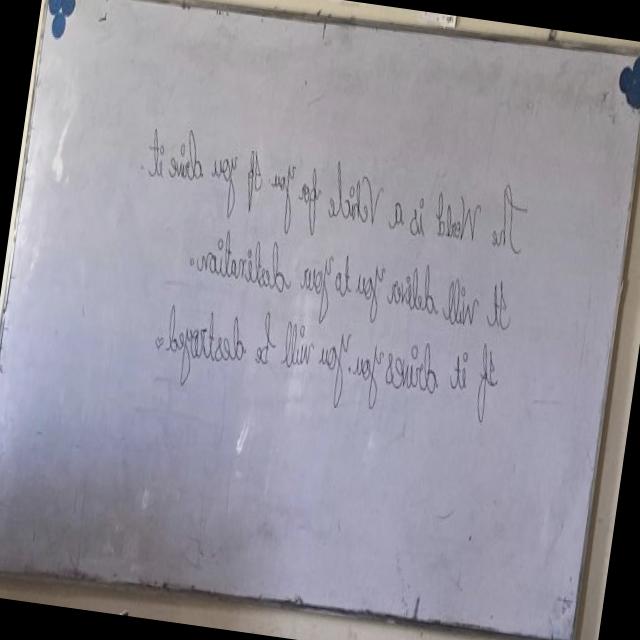 The World is a Vehicle for you If you drive it
It will deliver you to your destination.
If it drives you, you will be destroyed.